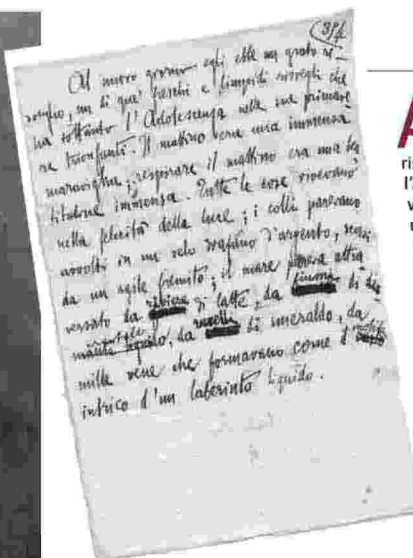 374
Al nuovo giorno egli ebbe un grato ri-
sveglio, un di que' freschi e limpidi risvegli che
ha soltanto l'Adolescenza nelle sue primave-
re trionfanti. Il mattino era una immensa
maraviglia; respirare il mattino era una bea-
titudine immensa. Tutte le cose vivevano
nella felicità della luce; i colli parevano
avvolti in un velo diafano d'argento, scossi
da un agile fremito; il mare pareva attra
versato da riviere di latte, da fiumi di
cristallo, da ruscelli di smeraldo, da
mille vene che formavano come il mobile
intrico d'un laberinto liquido.
A
ri
l'
v